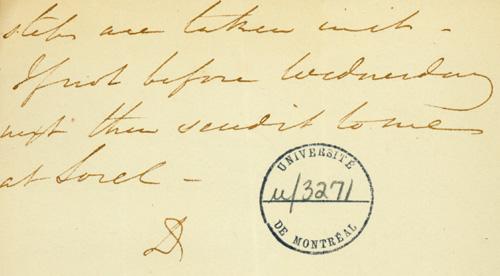 steps are taken in it -
If not before Wednesday
next then send it to me
at Sorel -
D
UNIVERSITÉ
u/3271
DE MONTRÉAL